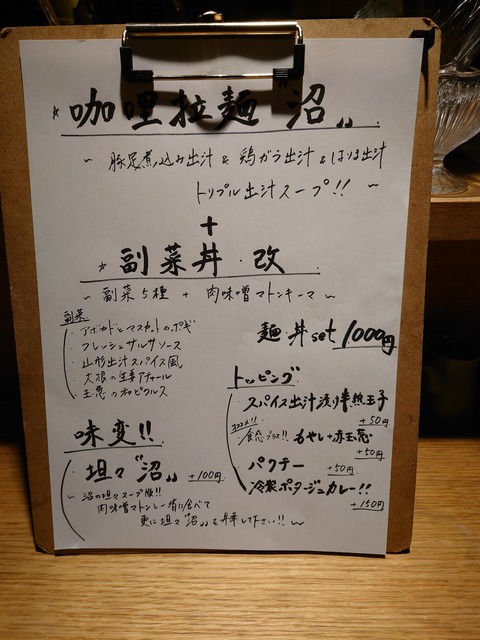 ☆咖哩拉麺〝沼〟
～豚足煮込み出汁 & 鶏ガラ出汁 & はりま出汁
トリプル出汁スープ!!～
+
☆副菜丼・改
～副菜5種 + 肉味噌マトンキーマ～
副菜
・アボカドとマスカットのポキ
・フレッシュサルサソース
・山形出汁スパイス風
・大根の生姜アチャール
・玉葱の
麺・丼set 1000円
トッピング
スパイス出汁漬り半熟玉子
+50円
オススメ!!
食感プラス!! もやし+赤玉葱
+50円
パクチー
+50円
冷製ポタージュカレー!!
+150円
味変!!
坦々〝沼〟 +100円
～沼の坦々スープ版!!
肉味噌マトンと一緒に食べて
更に坦々〝沼〟を昇華して下さい!!～